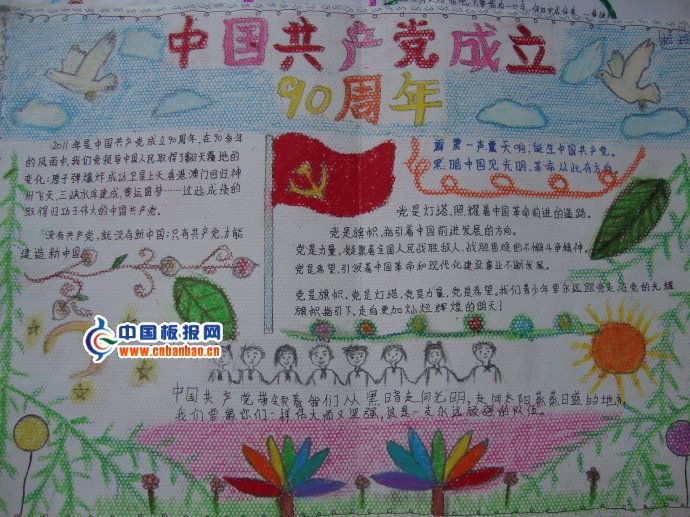 中国共产党成立
90周年
2011年是中国共产党成立90周年，在90多年
的风雨中，我们党领导中国人民取得了翻天覆地的
变化：原子弹爆炸成功卫星上天，香港，澳门回归，神
州飞天，三峡水库建成，奥运圆梦……这些成绩的
取得归功于伟大的中国共产党。
没有共产党，就没有新中国；只有共产党，才能
建造新中国
霹雳一声震天响，诞生中国共产党。
黑暗中国见光明，革命从此有方向
党是灯塔，照耀着中国革命前进的道路。
党是旗帜，指引着中国前进发展的方向。
党是力量，凝聚着全国人民战胜敌人、战胜困难的不懈斗争精神。
党是希望，引领着中国革命和现代化建设事业不断发展。
党是旗帜，党是灯塔，党是力量，党是希望，我们青少年要永远跟党走，在党的光耀
旗帜指引下，走向更加灿烂辉煌的明天！
中国板报网
www.cnbanbao.cn
中国共产党带领着我们从黑暗走向光明，走向太阳蒸蒸日盛的地方，
我们要像你们一样伟大而又坚强，这是一支永远顽强的队伍。